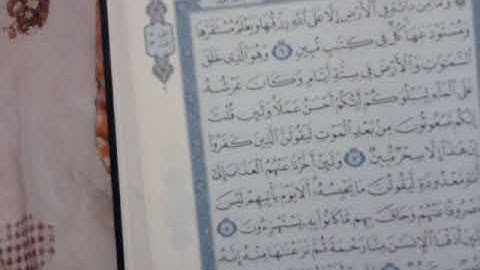 وَمَا مِن دَآبَّةٍ فِي ٱلْأَرْضِ إِلَّا عَلَى ٱللَّهِ رِزْقُهَا وَيَعْلَمُ مُسْتَقَرَّهَا
وَمُسْتَوْدَعَهَا كُلٌّ فِي كِتَٰبٍ مُّبِينٍ ٦ وَهُوَ ٱلَّذِي خَلَقَ
ٱلسَّمَٰوَٰتِ وَٱلْأَرْضَ فِي سِتَّةِ أَيَّامٍ وَكَانَ عَرْشُهُۥ
عَلَى ٱلْمَآءِ لِيَبْلُوَكُمْ أَيُّكُمْ أَحْسَنُ عَمَلًا وَلَئِن قُلْتَ
إِنَّكُم مَّبْعُوثُونَ مِنۢ بَعْدِ ٱلْمَوْتِ لَيَقُولَنَّ ٱلَّذِينَ كَفَرُوٓا۟
إِنْ هَٰذَآ إِلَّا سِحْرٌ مُّبِينٌ ٧ وَلَئِنْ أَخَّرْنَا عَنْهُمُ ٱلْعَذَابَ إِلَىٰٓ
أُمَّةٍ مَّعْدُودَةٍ لَّيَقُولُنَّ مَا يَحْبِسُهُۥٓ أَلَا يَوْمَ يَأْتِيهِمْ لَيْسَ
مَصْرُوفًا عَنْهُمْ وَحَاقَ بِهِم مَّا كَانُوا۟ بِهِۦ يَسْتَهْزِءُونَ ٨
وَلَئِنْ أَذَقْنَا ٱلْإِنسَٰنَ مِنَّا رَحْمَةً ثُمَّ نَزَعْنَٰهَا مِنْهُ إِنَّهُۥ